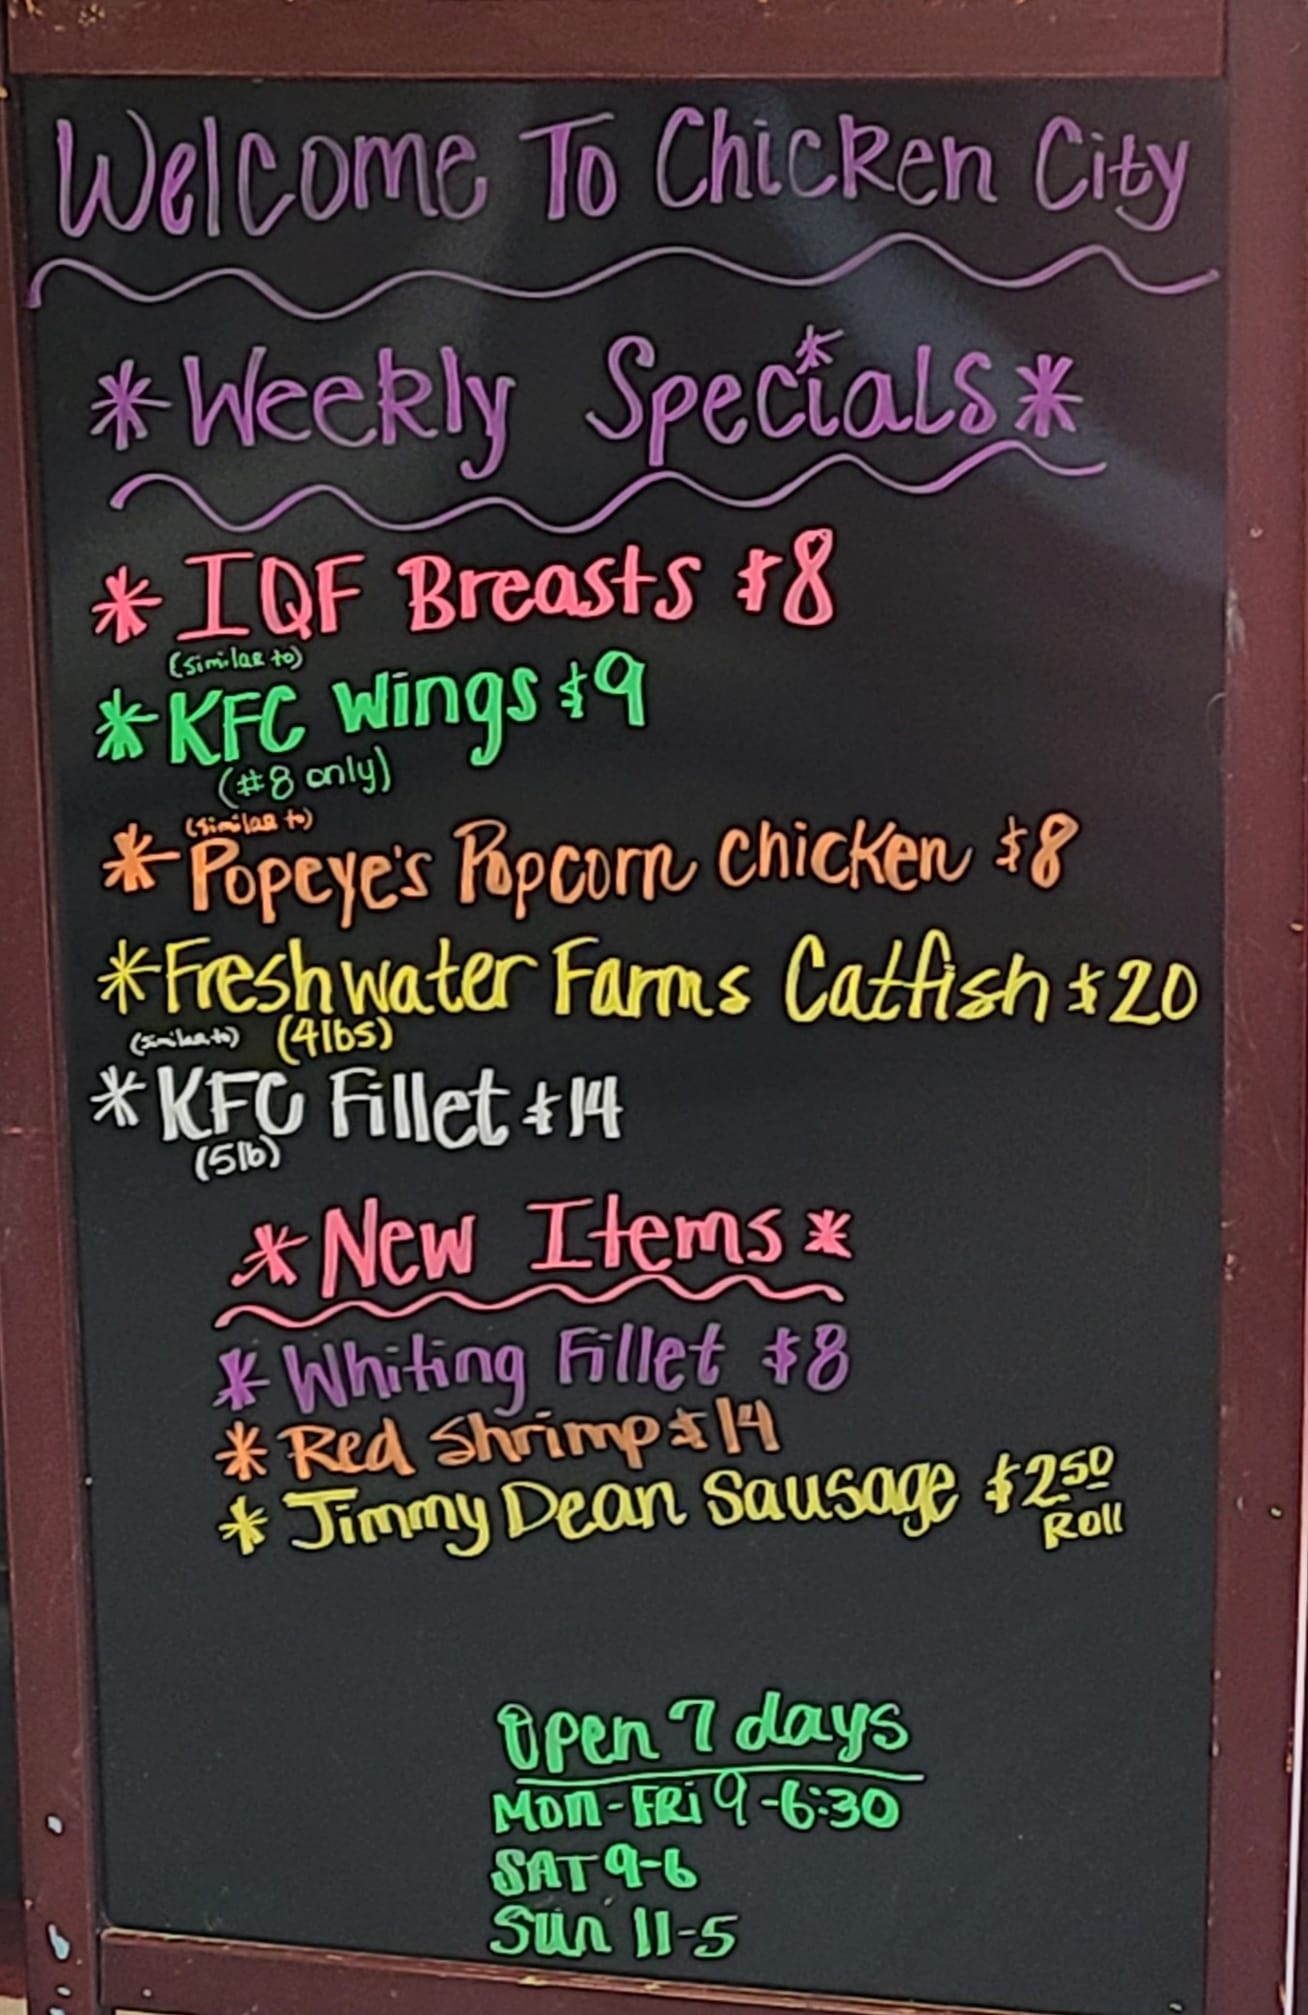 Welcome To Chicken City
*Weekly Specials*
* IQF Breasts $8
(similar to)
*KFC Wings $9
(#8 only)
(similar to)
*Popeye's Popcorn Chicken $8
*Freshwater Farms Catfish $20
(similar to) (4lbs)
*KFC Fillet $14
(5lb)
*New Items*
* Whiting Fillet $8
* Red Shrimp $14
* Jimmy Dean Sausage $2.50
Roll
Open 7 days
Mon-Fri 9-6:30
SAT 9-6
Sun 11-5